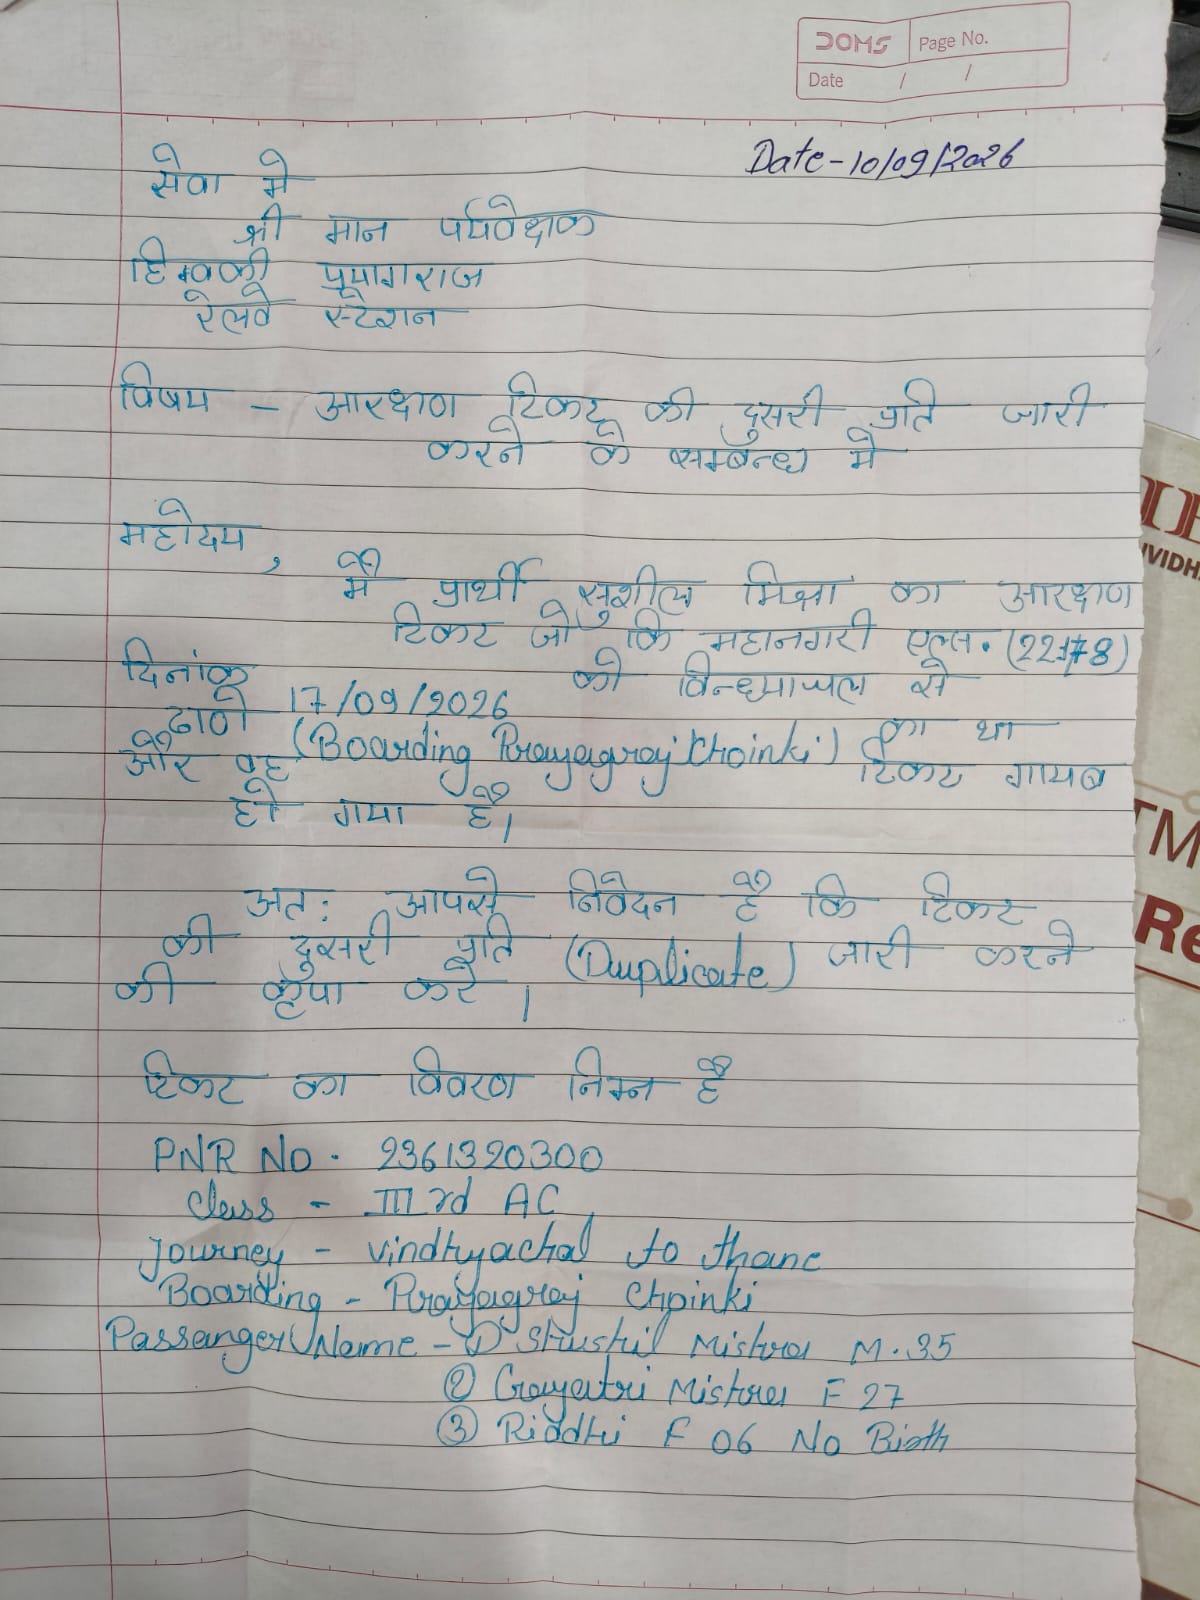 DOMS
Page No.
Date / /
Date - 10/09/2026
सेवा मे
श्री मान पर्यवेक्षक
प्रयागराज
रेलवे स्टेशन
विषय - आरक्षण टिकट की दुसरी प्रति जारी
करने के सम्बन्ध मे
महोदय,
मै प्रार्थी सुशील मिश्रा का आरक्षण
टिकट जो कि महानगरी एल्स. (22178)
दिनांक 17/09/2026 को विन्ध्याचल से
ढाणे (Boarding Prayagraj Choinki) का था
और वह टिकट गायब
हो गया है।
अतः आपसे निवेदन है कि टिकट
की दुसरी प्रति (Duplicate) जारी करने
की कृपा करे।
टिकट का विवरण निम्न है
PNR No. 2361320300
Class - III rd AC
Journey - Vindhyachal to thane
Boarding - Prayagraj Choinki
Passanger Name - ① Shushil Mishra M. 35
② Gayatri Mishra F 27
③ Riddhi F 06 No Birth
TM
Re